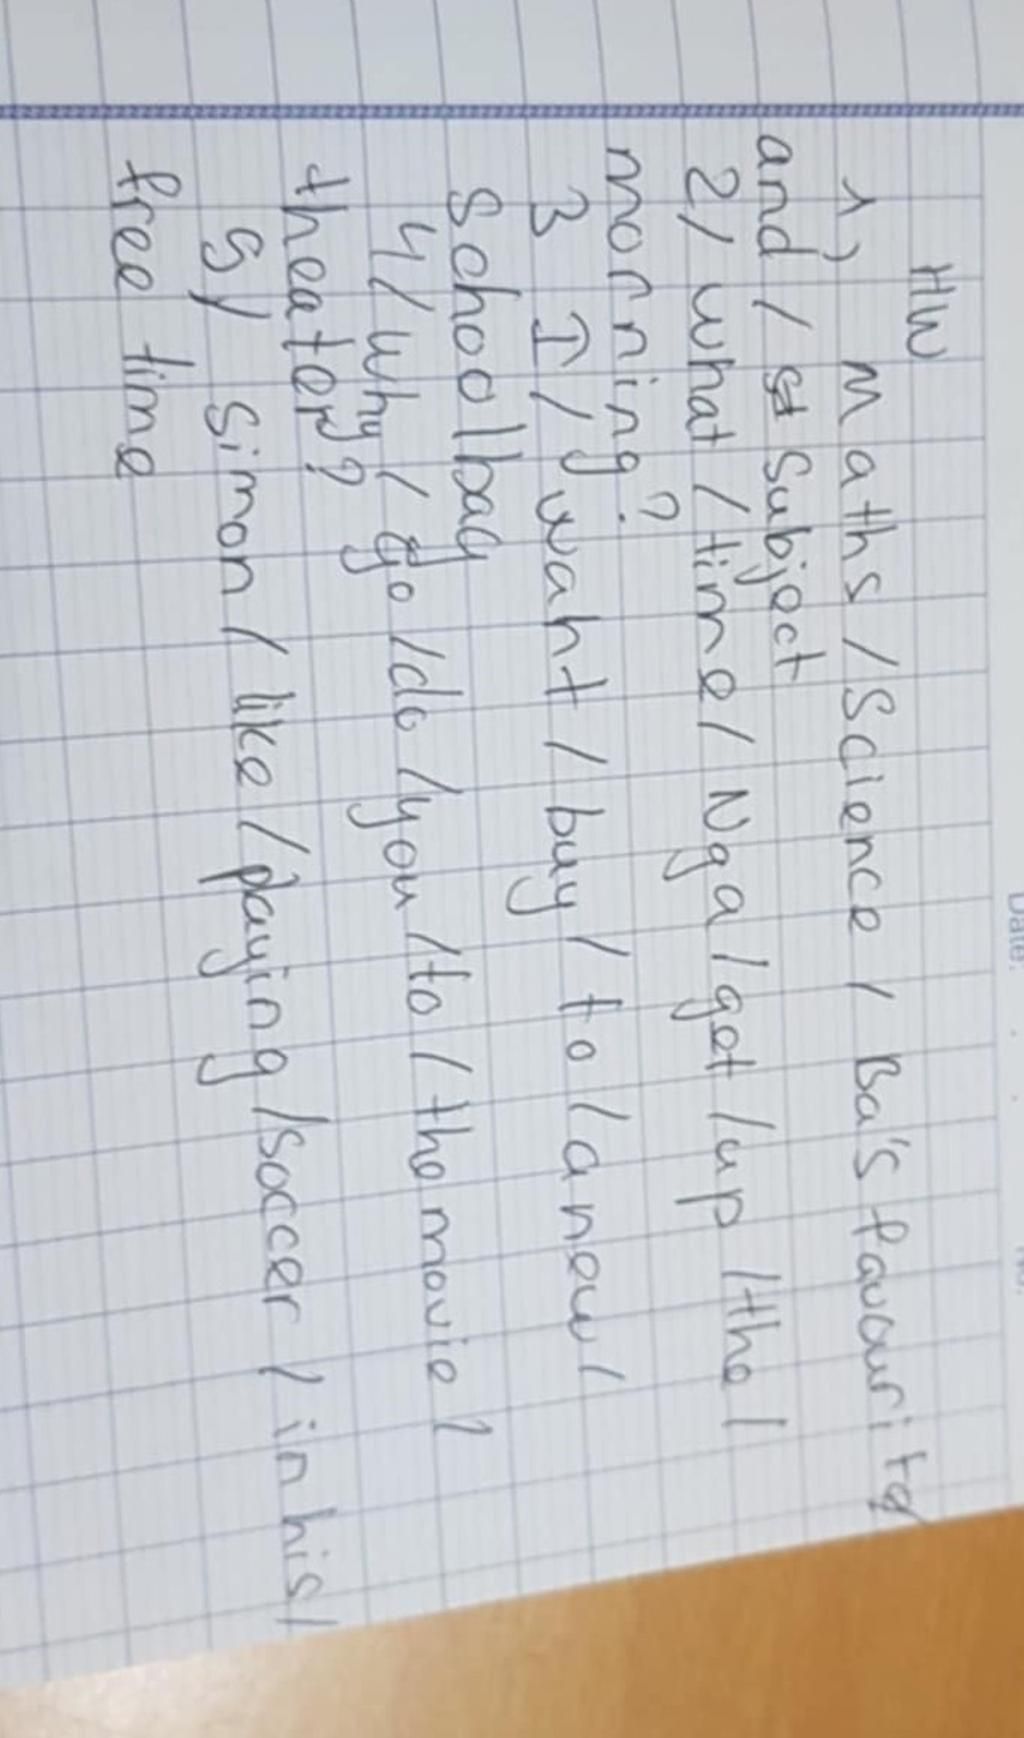 HW
1) Maths / Science / Ba's favourite
and / Subject
2/ what / time / Nga / get / up / the /
morning?
3 I / want / buy / to / a new /
Schoolbag
4/ why / go / do / you / to / the movie /
theater?
5/ Simon / like / playing / soccer / in his /
free time
Date:
No: